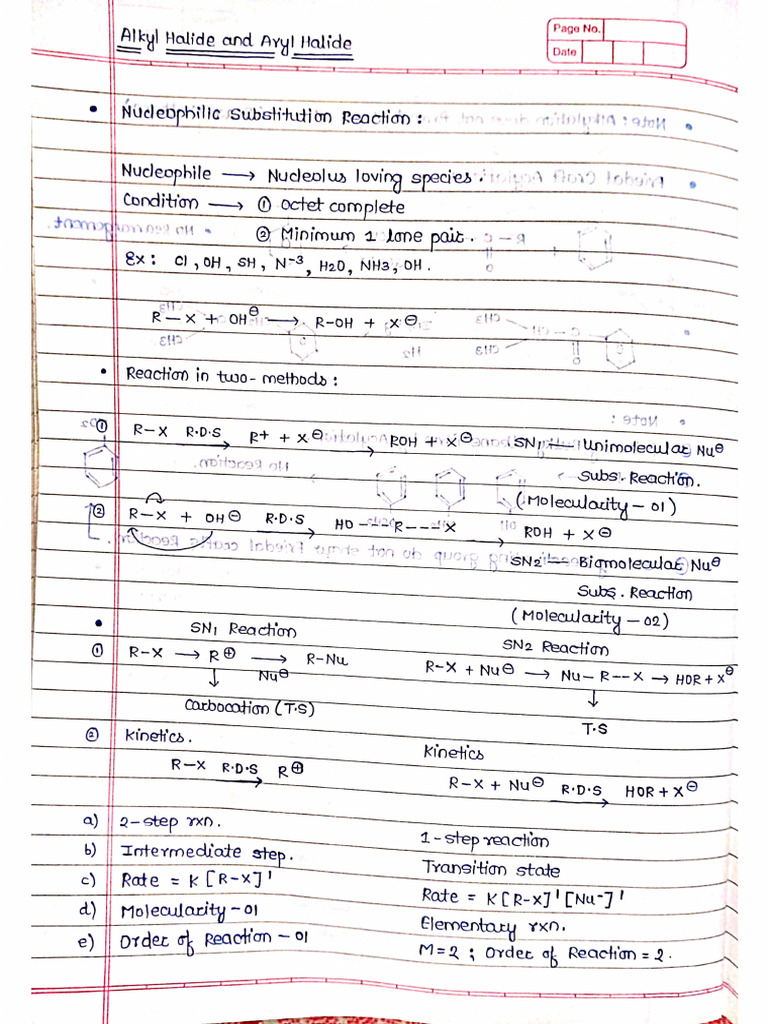 Alkyl Halide and Aryl Halide
Page No.
Date
• Nucleophilic Substitution Reaction :
Nucleophile ⟶ Nucleolus loving species.
Condition ⟶ ① Octet complete
② Minimum 1 lone pair.
Ex: Cl, OH, SH, N⁻³, H2O, NH3, OH.
R–X + OH⊖ ⟶ R-OH + X⊖
• Reaction in two-methods :
① R–X R.D.S ⟶ R+ + X⊖ ⟶ ROH + X⊖ SN1 – Unimolecular Nu⊖
Subs. Reaction.
(Molecularity – 01)
② R–X + OH⊖ R.D.S ⟶ HO---R---X ⟶ ROH + X⊖
SN2 – Biomolecular Nu⊖
Subs. Reaction
(Molecularity – 02)
• SN1 Reaction SN2 Reaction
① R-X ⟶ R⊕ ⟶ R-Nu R-X + Nu⊖ ⟶ Nu– R--X → HOR + X⊖
↓ Nu⊖ ↓
Carbocation (T.S) T.S
② Kinetics. Kinetics
R-X R.D.S ⟶ R⊕ R-X + Nu⊖ R.D.S ⟶ HOR + X⊖
a) 2-step rxn. 1-step reaction
b) Intermediate step. Transition state
c) Rate = K [R-X]¹ Rate = K[R-X]¹ [Nu⁻]¹
d) Molecularity – 01 Elementary rxn.
e) Order of Reaction – 01 M=2 ; Order of Reaction = 2.